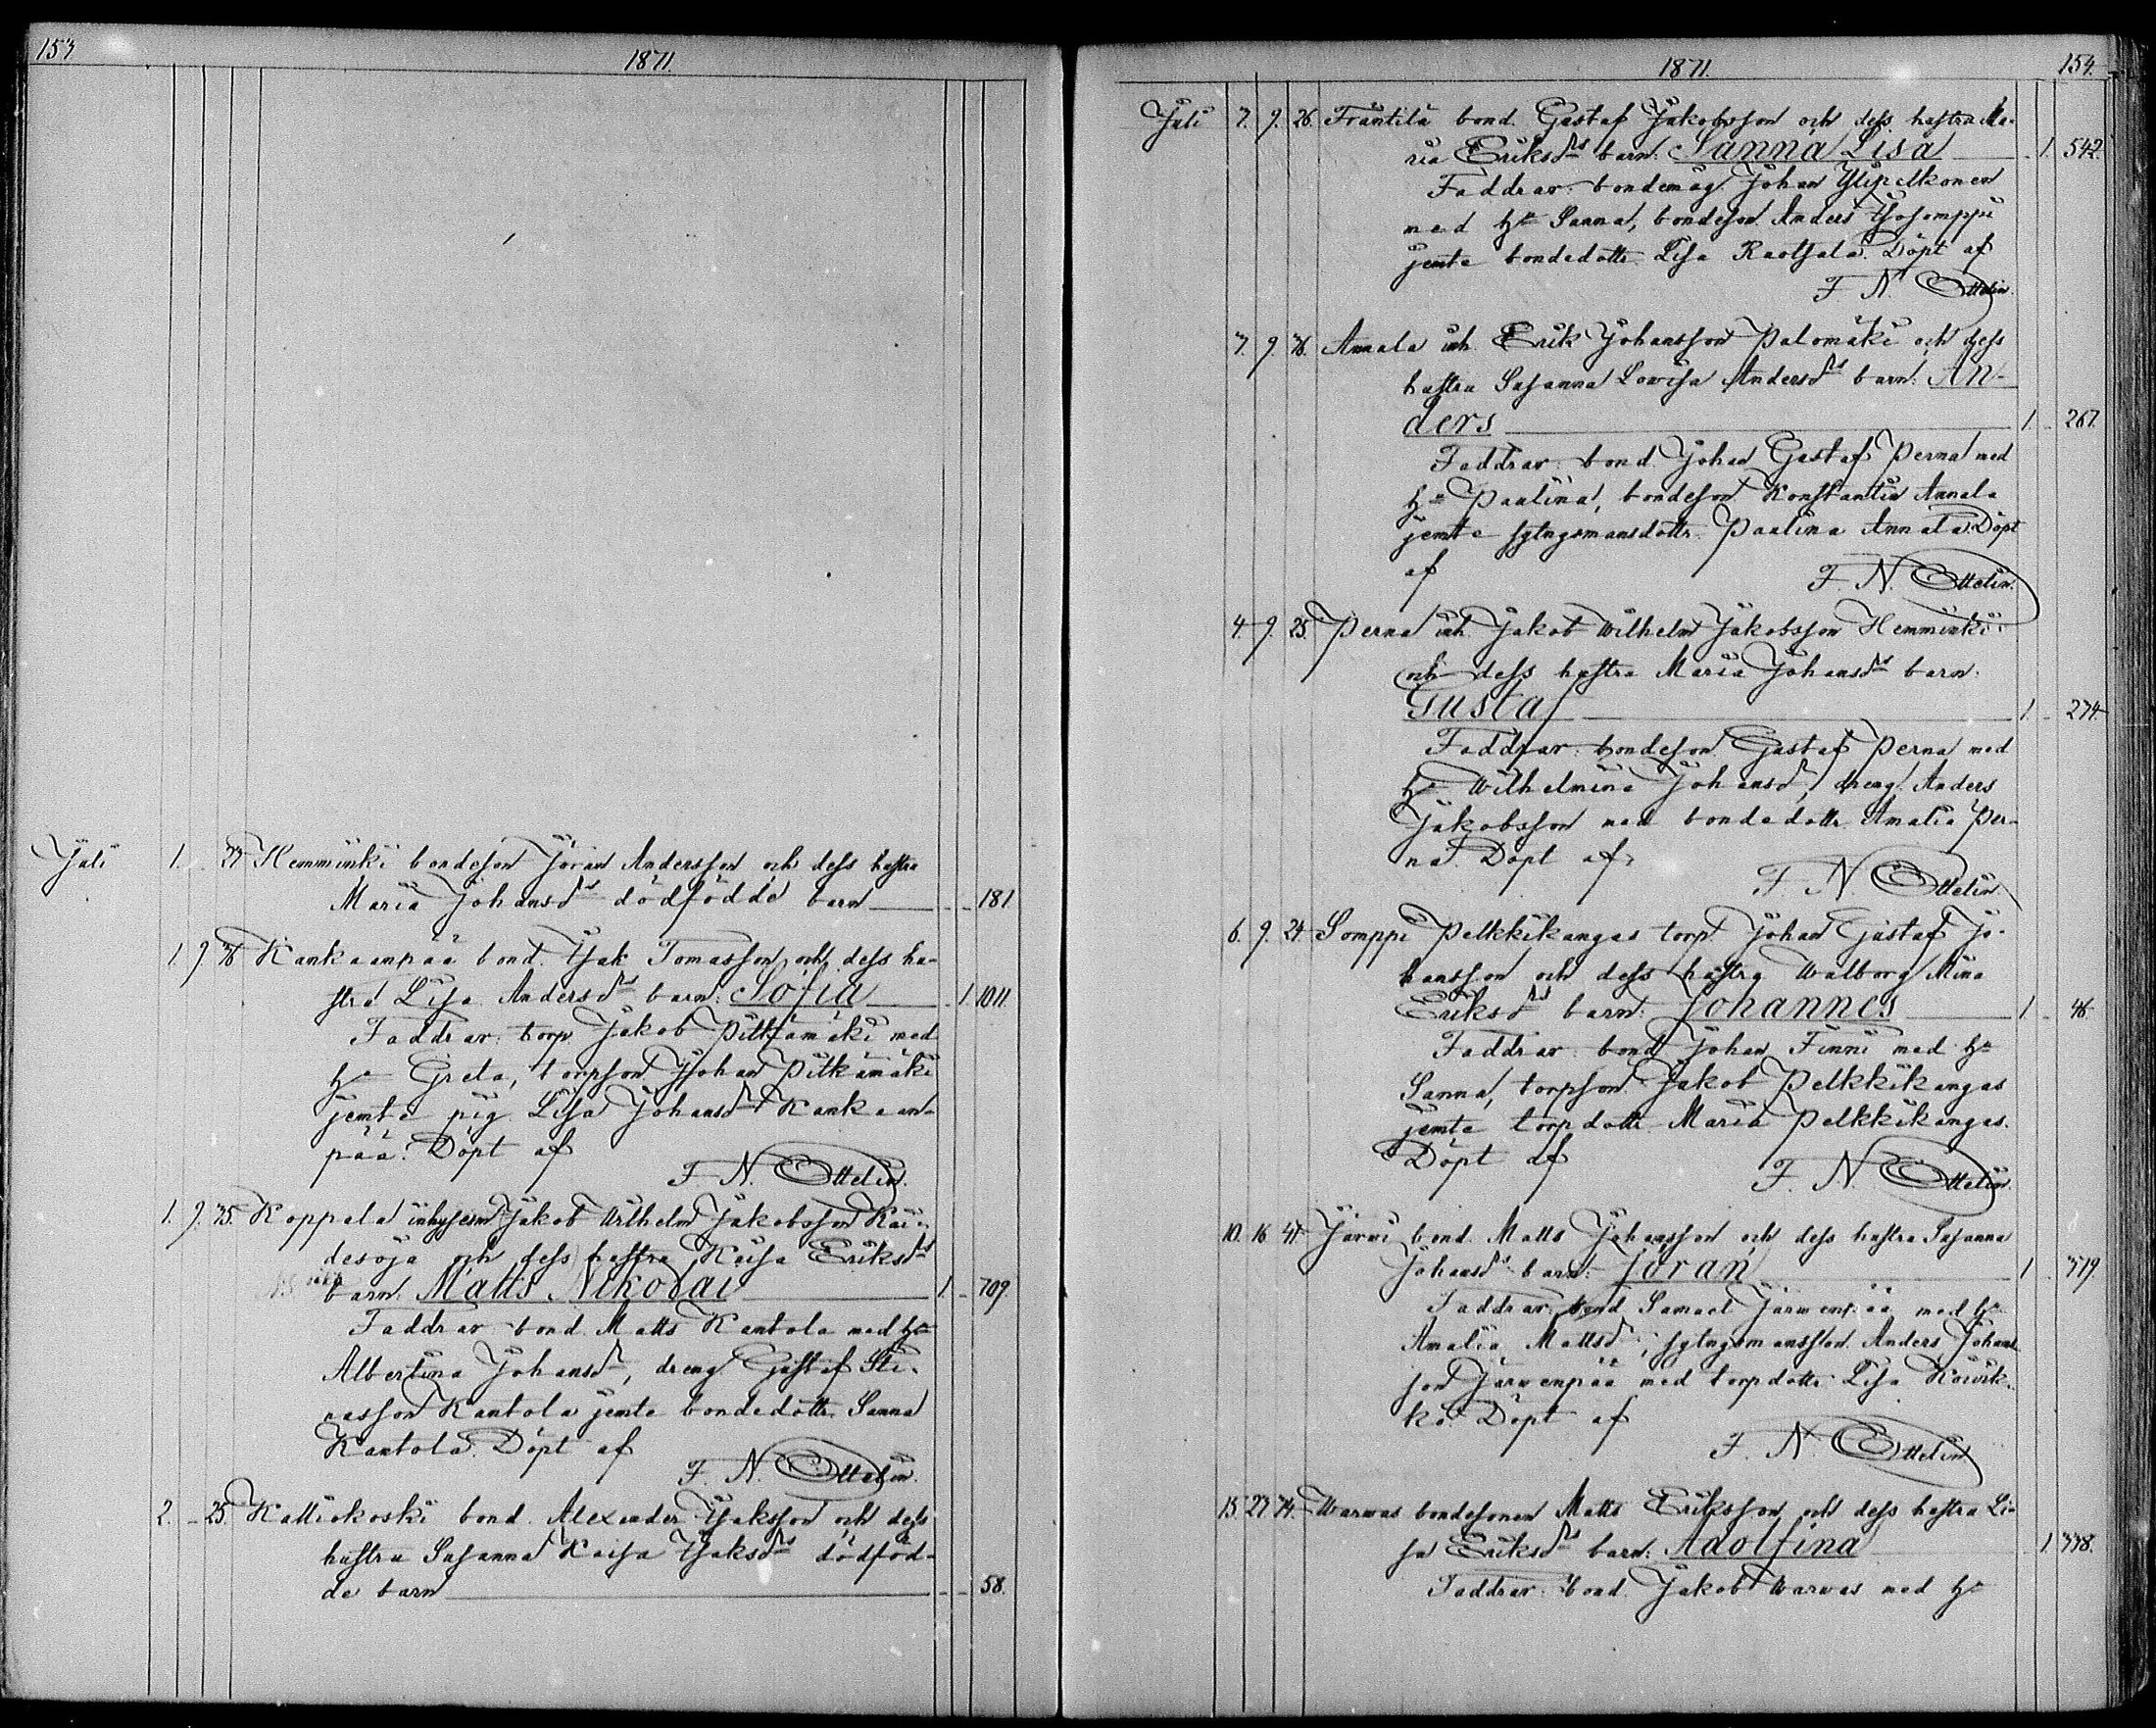 153.
1871.
Juli 1. 27 Hemminki bondeson Jöran Andersson och dess hustru
Maria Johansdrs dödfödde barn 181
1. 9. 36 Kankaanpää bond. Isak Tomasson och dess hu-
stru Lisa Andersdrs barn: Sofia 1. 1011.
Faddrar: torp. Jakob Pitkämäki med
h. Greta, torpson Johan Pitkämäki
jemte pig. Lisa Johansdr Kankaan-
pää. Döpt af
F. N. Ottelin.
1. 9. 35. Koppala inhysesm Jakob Wilhelm Jakobsson Kai-
desoja och dess hustru Kaisa Eriksdrs
barn: Matts Nikolai 1. 709.
Faddrar: bond. Matts Kantola med hu
Albertina Johansdr, dreng Gustaf
asson Kantola jemte bondedottr. Sanna
Kantola. Döpt af
F. N. Ottelin.
2. 25. Kattiokoski bond. Alexander Isaksson och dess
hustru Susanna Kaisa Isaksdrs dödföd-
de barn 58.
1871.
154.
Juli 7. 9. 26. Fräntilä bond. Gustaf Jakobsson och dess hustru Ma-
ria Eriksdrs barn: Sanna Lisa 1. 542.
Faddrar: bondemåg. Johan Ylipelkonen
med hu Sanna, bondeson Anders
jemte bondedottr. Lisa Raotsala. Döpt af
F. N. Ottelin.
7. 9. 36. Annala inh. Erik Johansson Palomäki och dess
hustru Susanna Lowisa Andersdrs barn: An-
ders 1. 267.
Faddrar: bond. Johan Gustaf Perna med
hu Paulina, bondeson Konstantin Annala
jemte sytngsmansdottr. Paulina Annala. Döpt
af
F. N. Ottelin.
4. 9. 25. Perna inh. Jakob Wilhelm Jakobsson Hemminki
och dess hustru Maria Johansdrs barn:
Gustaf 1. 274.
Faddrar: bondeson Gustaf Perna med
h. Wilhelmina Johansdr, dreng. Anders
Jakobsson med bondedottr. Amalia Per-
na. Döpt af
F. N. Ottelin
6. 9. 24. Somppi Pelkkikangas torp. Johan Gustaf Jo-
hansson och dess hustru Walborg Mina
Eriksdrs barn: Johannes 1. 46.
Faddrar: bond Johan Finni med hu
Sanna, torpson Jakob Pelkkikangas
jemte torpdottr. Maria Pelkkikangas.
Döpt af
F. N. Ottelin.
10. 16. 41. Järwi bond. Matts Johansson och dess hustru Susanna
Johansdrs barn: Jöran 1. 319.
Faddrar: bond Samuel Järwenpää med hu
Amalia Mattsdr, sytngsmansson. Anders Johans-
son Järwenpää med torpdottr. Lisa Koiwik-
ko. Döpt af
F. N. Ottelin
15. 23. 34. Warwas bondesonen Matts Eriksson och dess hustru Li-
sa Eriksdrs barn: Adolfina 1. 338.
Faddrar: bond. Jakob Warwas med hu